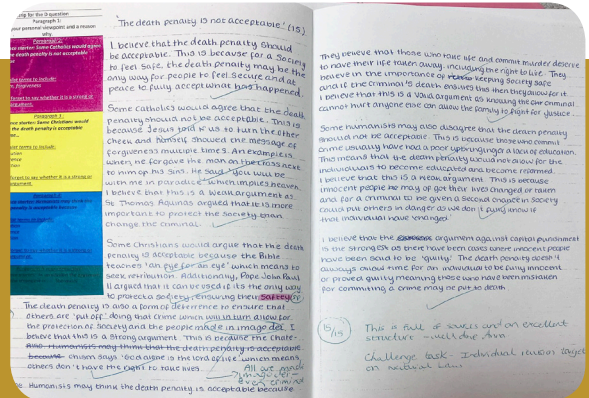 ing for the D question
Paragraph 1:
your personal viewpoint and a reason
why.
Paragraph 2:
ce starter: Some Catholics would agree
the death penalty is not acceptable
terms to include:
forgiveness
forget to say whether it is a strong or
Paragraph 3
starter: Some Christians would
the death penalty is acceptable
terms to include:
forget to say whether it is a strong
'The death penalty is not acceptable.' (15)
I believe that the death penalty should
be acceptable. This is because for a society
to feel safe, the death penalty may be the
only way for people to feel secure and at
peace to fully accept what has happened.
Some Catholics would agree that the death
penalty should not be acceptable. This is
because Jesus told us to turn the other
cheek and himself showed the message of
forgiveness multiple times. An example is
when he forgave the man on the cross next
to him of his sins. He said 'you will be
with me in paradise' which implies heaven.
I believe that this is a weak argument as
St Thomas Aquinas argued that it is more
important to protect the society than
change the criminal.
Some Christians would argue that the death
penalty is acceptable because the Bible
teaches 'an eye for an eye' which means to
seek retribution. Additionally, Pope John Paul
II argued that it can be used if its the only way
to protect a society, ensuring their safety
The death penalty is also a form of deterrence to ensure that
others are 'put off' doing that crime which will in turn allow for
the protection of society and the people made in imago dei. I
believe that this is a strong argument. This is because the Chate-
Also Humanists may think that the death penalty is acceptable
because chism says 'God alone is the lord of life' which means
others don't have the right to take lives.
All are made
imago dei -
even criminals
Humanists may think the death penalty is acceptable because
They believe that those who take life and commit murder deserve
to have their life taken away, including the right to live. They
believe in the importance of keeping society safe
and if the criminal's death ensures this then they allow for it.
I believe that this is a valid argument as knowing the criminal
cannot hurt anyone else can allow the family to fight for justice.
Some humanists may also disagree that the death penalty
should not be acceptable. This is because those who commit
crime usually have had a poor upbringing or a lack of education.
This means that the death penalty would not allow for the
individual to become educated and become reformed.
I believe that this is a weak argument. This is because
innocent people may of got their lives changed or taken
and for a criminal to be given a second chance in society
could put others in danger as we don't fully know if
that individual have changed.
I believe that the argument against capital punishment
is the strongest as there have been cases where innocent people
have been said to be 'guilty'. The death penalty doesn't
always allow time for an individual to be fully innocent
or proved guilty meaning those who have been mistaken
for committing a crime may be put to death.
15/15
This is full of sources and an excellent
structure - well done
Challenge task - Individual reason
on natural law.